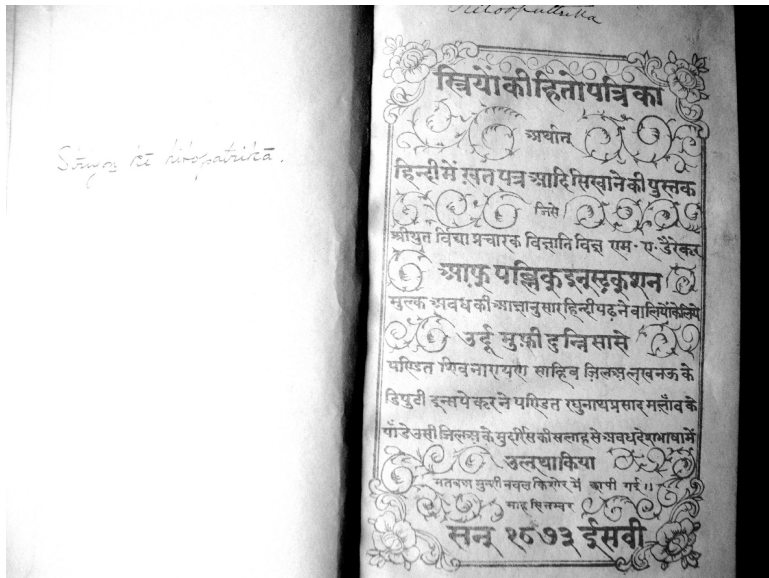 Striyoṇ kī hitopatrikā.
Hitooputtrika
स्त्रियों की हितोपत्रिका
अर्थात्
हिन्दी में ख़त पत्र आदि सिखाने की पुस्तक
जिसे
श्रीयुत विद्या प्रचारक विज्ञाति विज्ञ एम॰ ए॰ डैरेकृर
आफ़् पब्लिक् इन्स्ट्रक्शन
मुल्क अवध की आज्ञानुसार हिन्दी पढ़ने वालियों के लिये
उर्दू मुफ़ी दुन्निसा से
पण्डित शिवनारायण साहिब ज़िलअ़ लखनऊ के
डिपुटी इन्सपेकृर ने पण्डित रघुनाथप्रसाद मलाँव के
पाँड़े उसी ज़िलअ़ के मुदर्रिस की सलाह से अवध देश भाषा में
उलथा किया
मतबअ़ मुन्शी नवल किशोर में छापी गई॥
माह सितम्बर
सन् १८७३ ईसवी